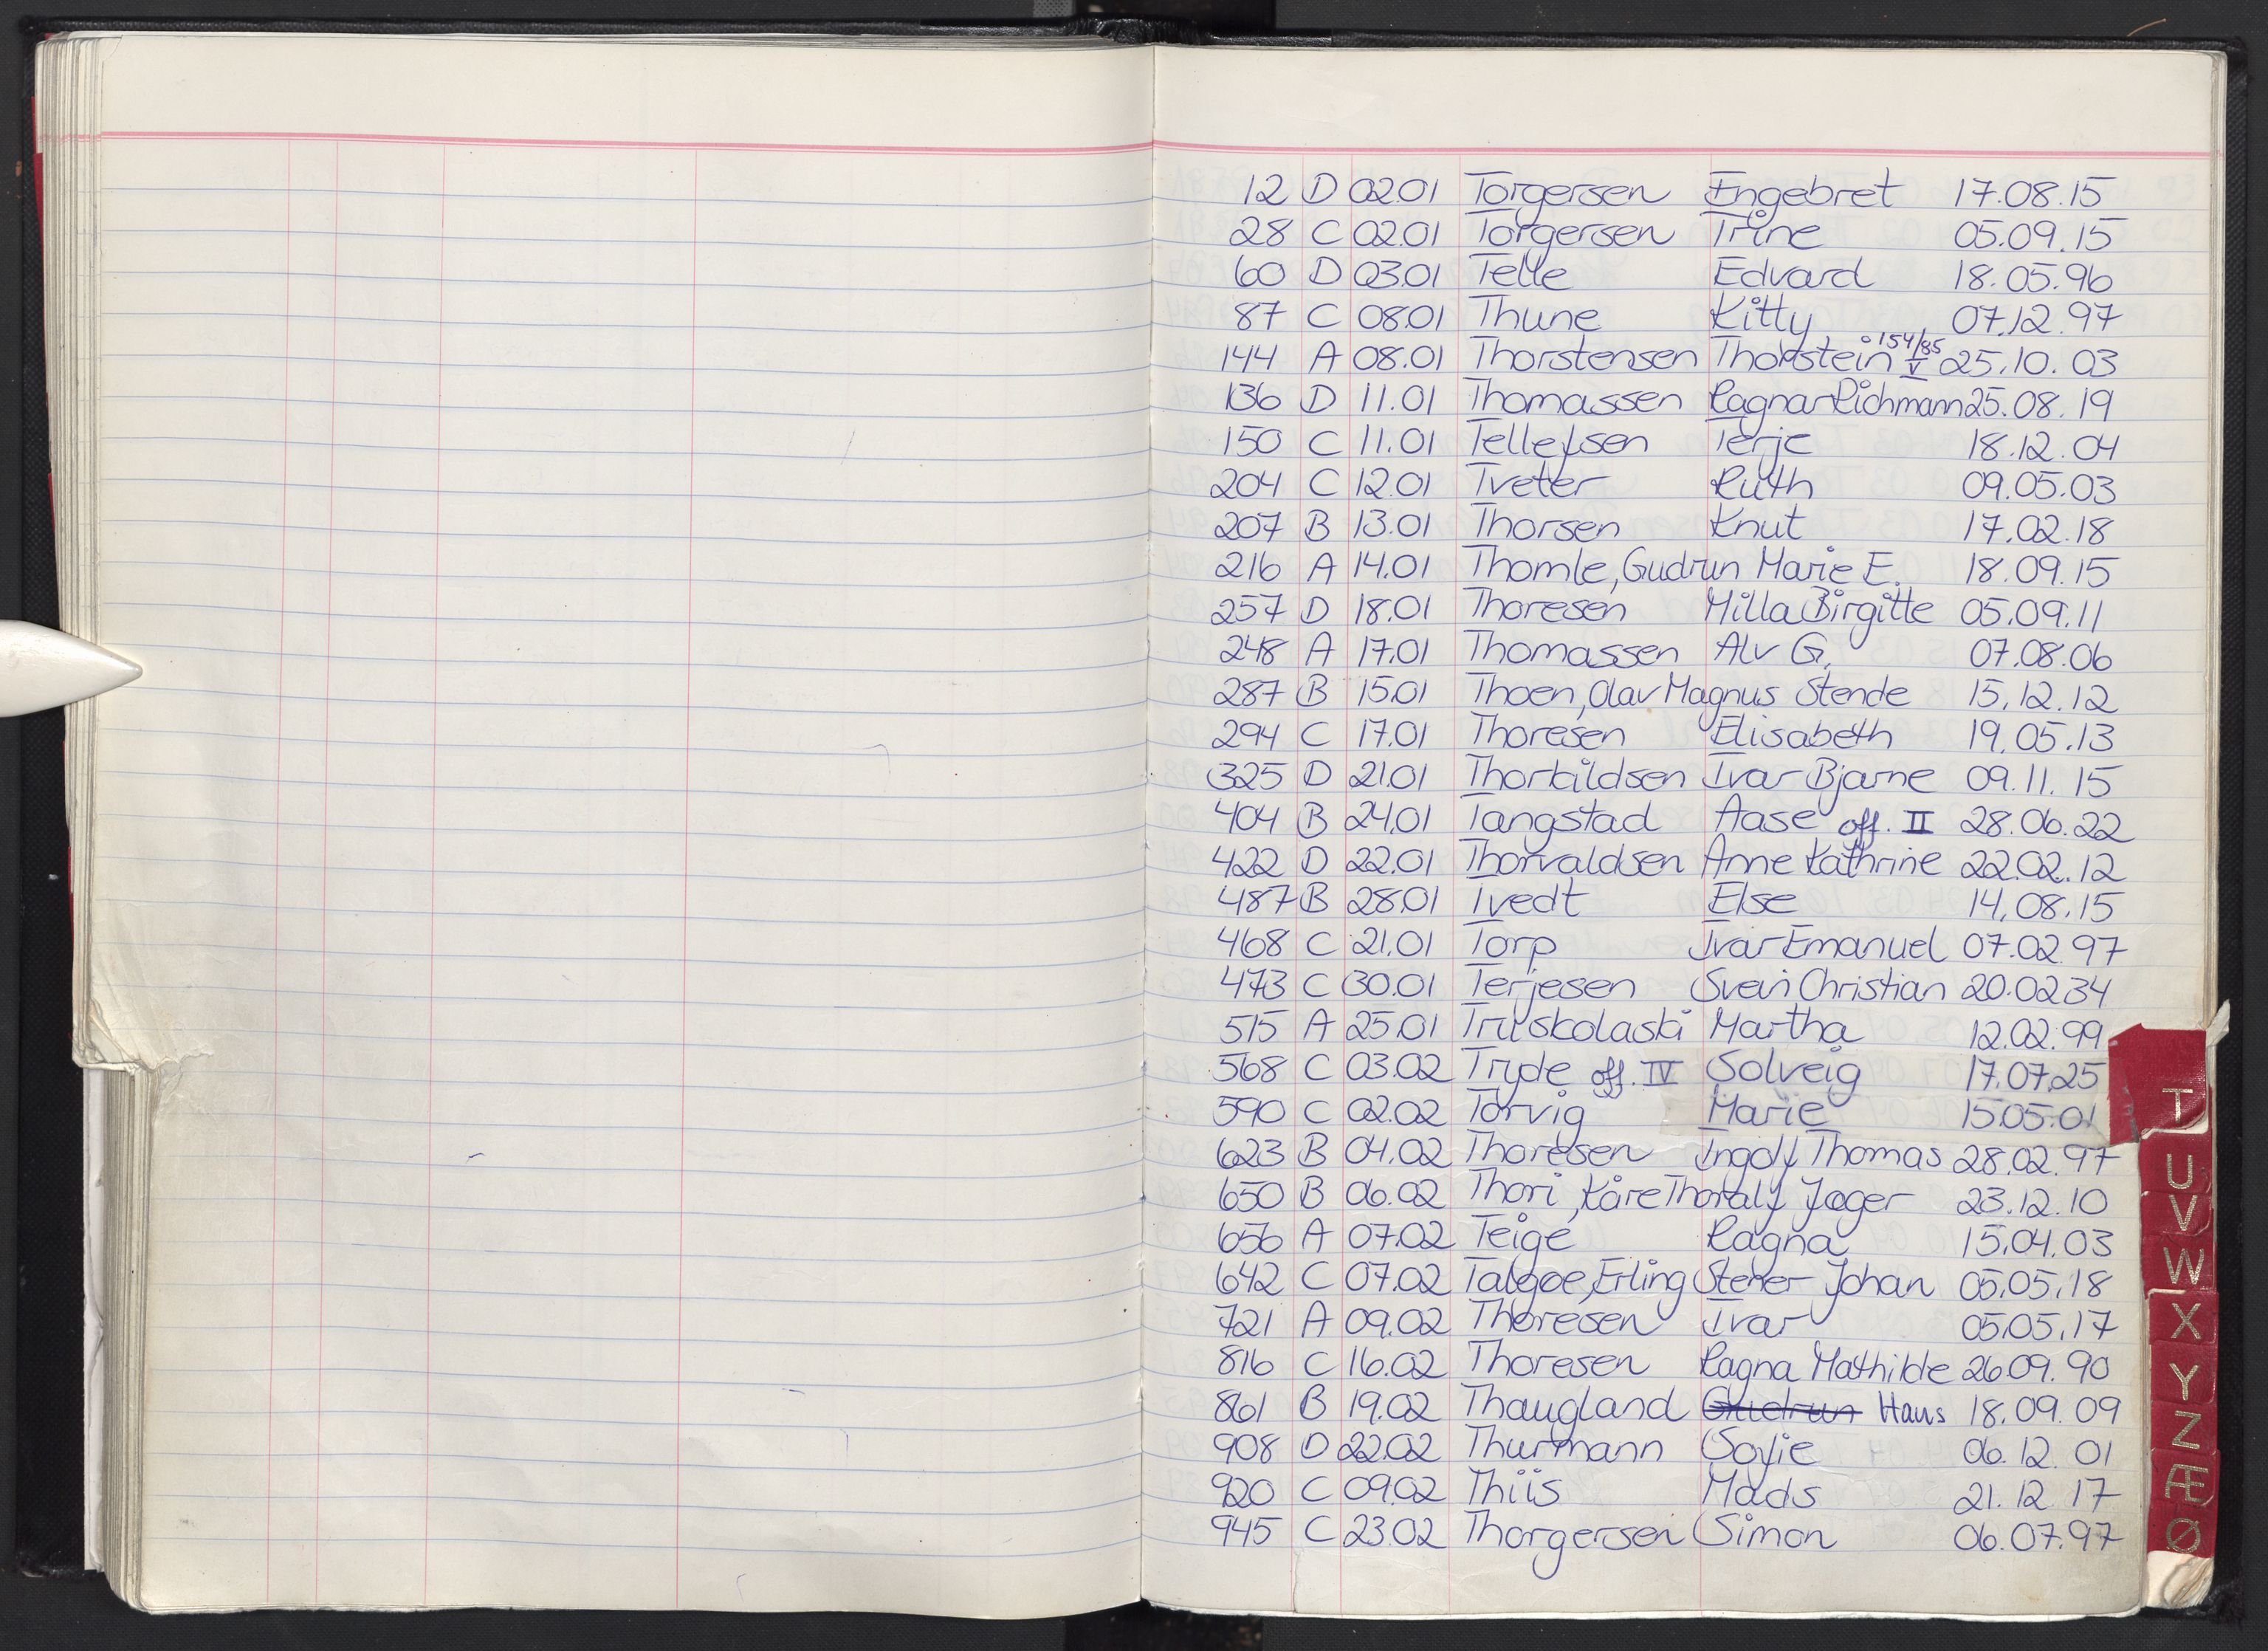 12 D 02.01 Torgersen Engebret 17.08.15
28 C 02.01 Torgersen Trine 05.09.15
60 D 03.01 Telle Edvard 18.05.96
87 C 08.01 Thune Kitty 07.12.97
144 A 08.01 Thorstensen Thorstein 154/85 V 25.10.03
136 D 11.01 Thomassen Ragnar Richmann 25.08.19
150 C 11.01 Tellefsen Terje 18.12.04
204 C 12.01 Tveter Ruth 09.05.03
207 B 13.01 Thorsen Knut 17.02.18
216 A 14.01 Thomle, Gudrun Marie E. 18.09.15
257 D 18.01 Thoresen Milla Birgitte 05.09.11
248 A 17.01 Thomassen Alv G. 07.08.06
287 B 15.01 Thoen, Olav Magnus Stende 15.12.12
294 C 17.01 Thoresen Elisabeth 19.05.13
325 D 21.01 Thorkildsen Ivar Bjarne 09.11.15
404 B 24.01 Tangstad Aase off. II 28.06.22
422 D 22.01 Thorvaldsen Anne Kathrine 22.02.12
487 B 28.01 Tvedt Else 14.08.15
468 C 21.01 Torp Ivar Emanuel 07.02.97
473 C 30.01 Terjesen Svein Christian 20.02.34
515 A 25.01 Truskolaski Martha 12.02.99
568 C 03.02 Tryde off. IV Solveig 17.07.25
590 C 02.02 Torvig Marie 15.05.01
623 B 04.02 Thoresen Ingolf Thomas 28.02.97
650 B 06.02 Thori, Kåre Thoralf Jæger 23.12.10
656 A 07.02 Teige Ragna 15.04.03
642 C 07.02 Talgøe, Erling Stener Johan 05.05.18
721 A 09.02 Thoresen Ivar 05.05.17
816 C 16.02 Thoresen Ragna Mathilde 26.09.90
861 B 19.02 Thaugland Gudrun Hans 18.09.09
908 D 22.02 Thurmann Sofie 06.12.01
920 C 09.02 Thiis Mads 21.12.17
945 C 23.02 Thorgersen Simon 06.07.97
T
U
V
W
X
Y
Z
Æ
Ø